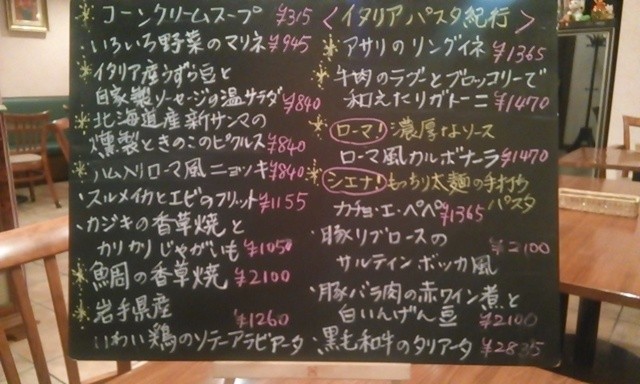 コーンクリームスープ ¥315
いろいろ野菜のマリネ ¥945
イタリア産うずら豆と
自家製ソーセージの温サラダ ¥840
北海道産新サンマの
燻製ときのこのピクルス ¥840
ハム入りローマ風ニョッキ ¥840
スルメイカとエビのフリット ¥1155
カジキの香草焼と
カリカリじゃがいも ¥1050
鯛の香草焼 ¥2100
岩手県産 ¥1260
いわい鶏のソテーアラビアータ
〈イタリアパスタ紀行〉
アサリのリングイネ ¥1365
牛肉のラグーとブロッコリーで
和えたリガトーニ ¥1470
ローマ! 濃厚なソース
ローマ風カルボナーラ ¥1470
シエナ! もっちり太麺の手打ち
パスタ
カチョ・エ・ペペ ¥1365
豚リブロースの ¥2100
サルティンボッカ風
豚バラ肉の赤ワイン煮と
白いんげん豆 ¥2100
黒毛和牛のタリアータ ¥2835